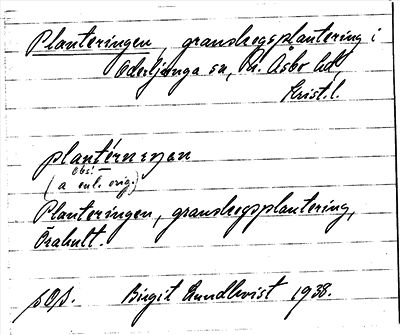 Planteringen, granskogsplantering i
Oderljunga sn, N. Åsbo hd
Krist. l.
plantérnenan
obs!
(a enl. orig.)
Planteringen, granskogsplantering,
Örahult.
sOs. Birgit Rundkvist 1938.